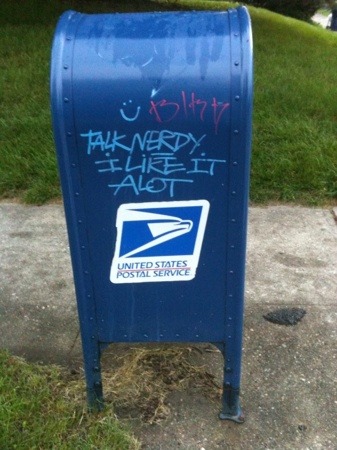 TALK NERDY
I LIKE IT
ALOT
UNITED STATES
POSTAL SERVICE